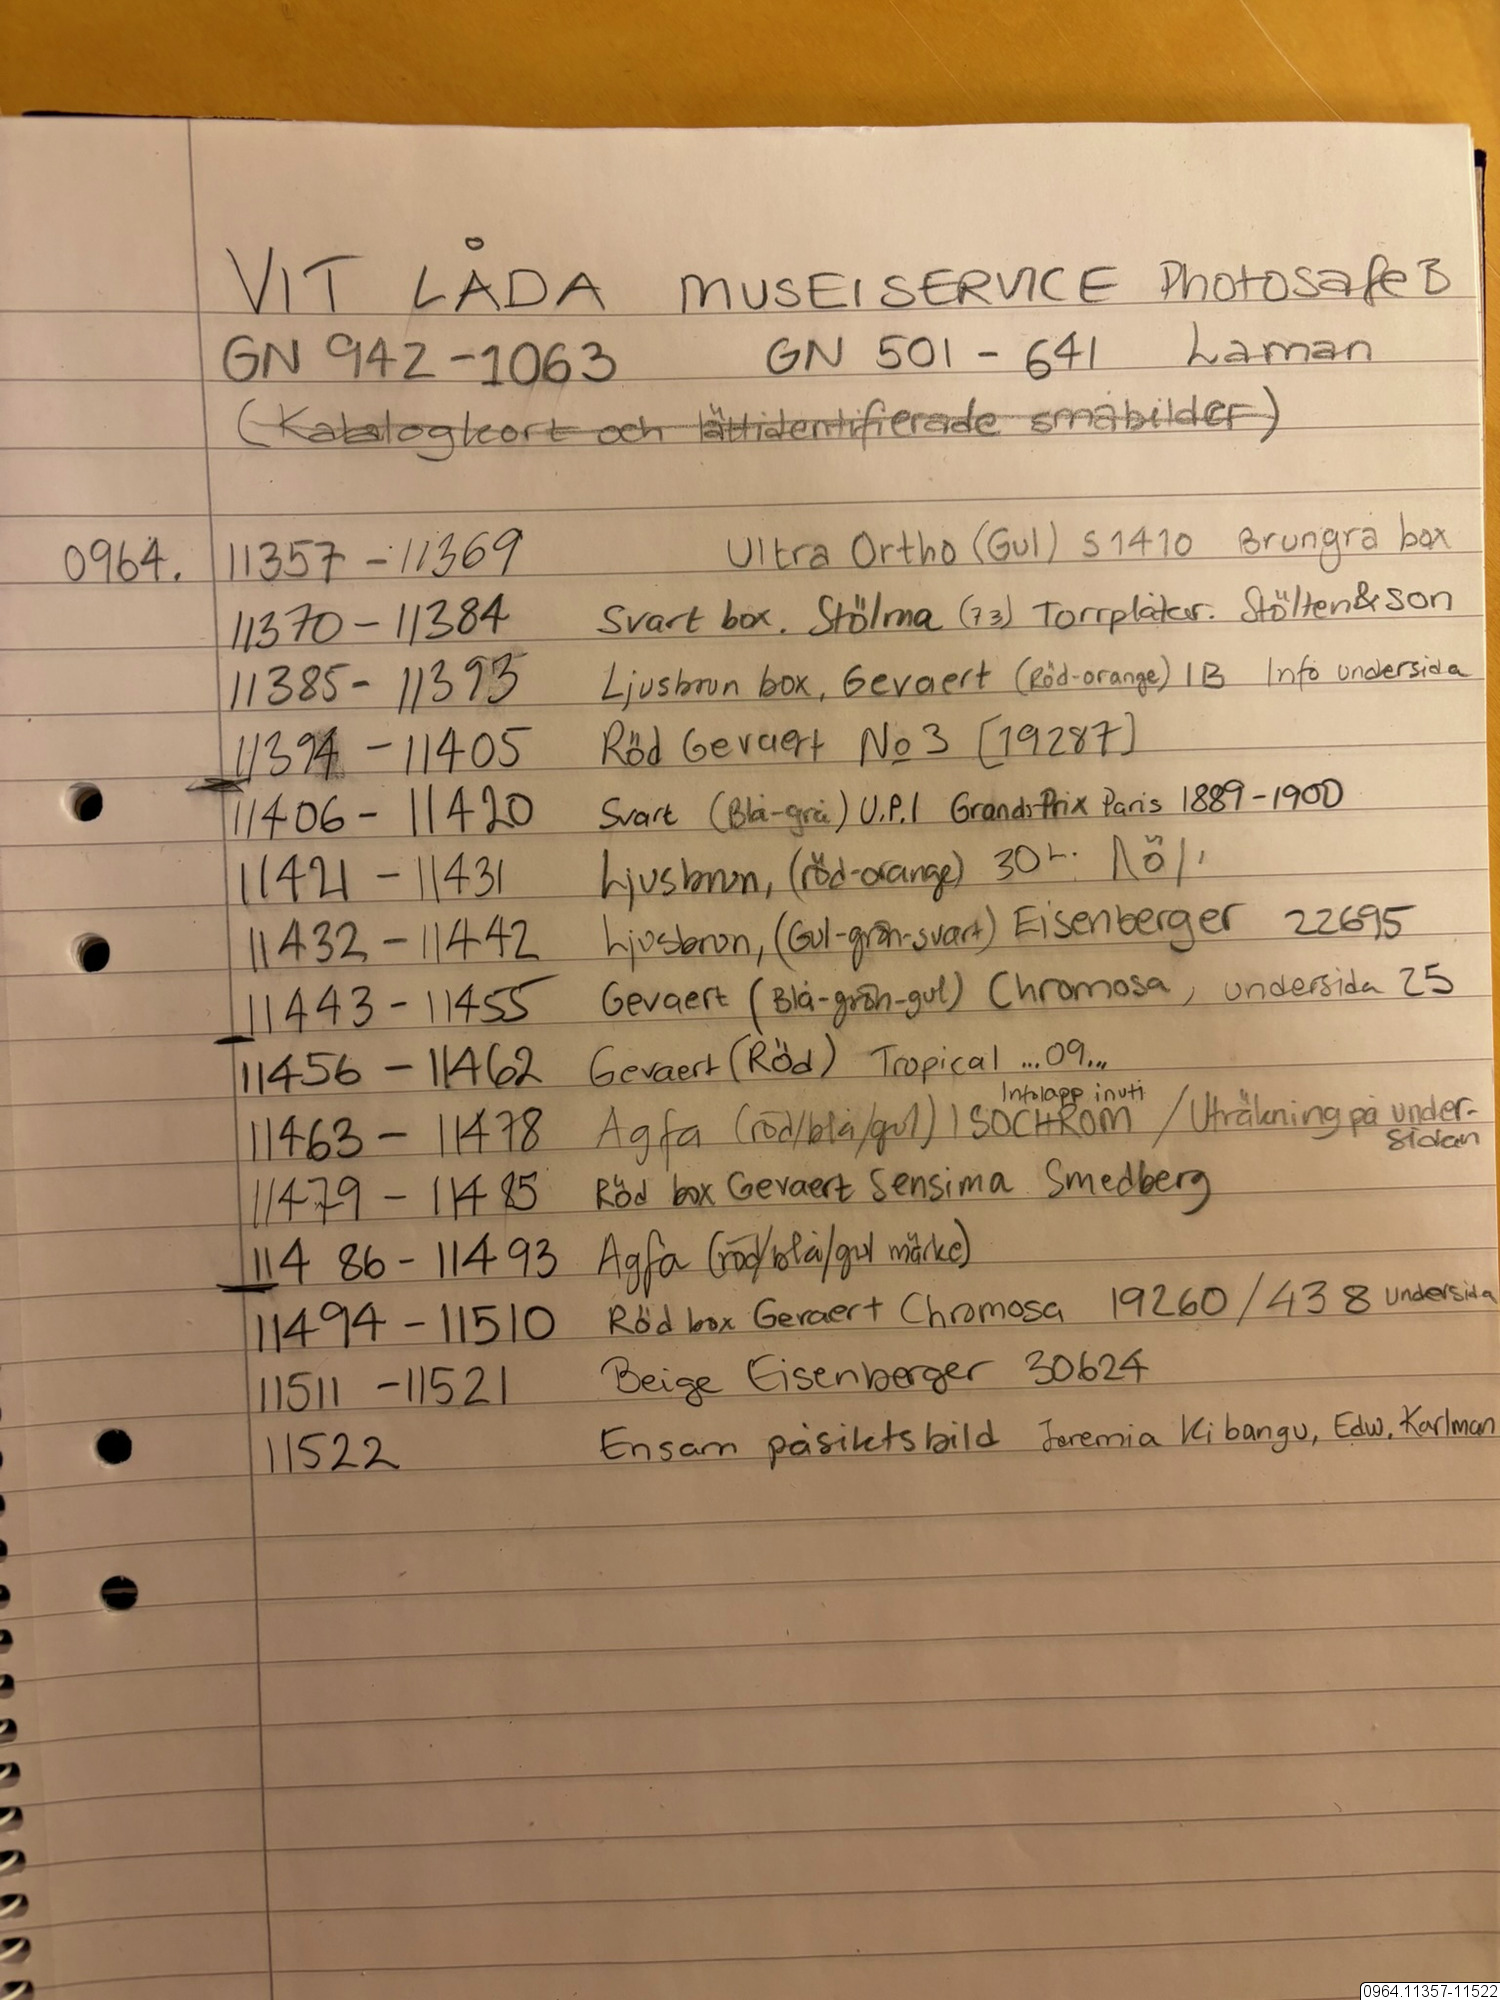 VIT LÅDA MUSEISERVICE PhotosafeB
GN 942-1063 GN 501-641 Laman
(Katalogkort och lättidentifierade småbilder)
0964. 11357-11369 Ultra Ortho (Gul) S1410 Brungrå box
11370-11384 Svart box. Stölma (73) Torrplåtar. Stölten&Son
11385-11393 Ljusbrun box, Gevaert (Röd-orange) 1B Info undersida
11394-11405 Röd Gevaert No 3 [19287]
11406-11420 Svart (Blå-grå) U.P.1 Grands Prix Paris 1889-1900
11421-11431 Ljusbrun, (röd-orange) 30
11432-11442 Ljusbrun, (Gul-grön-svart) Eisenberger 22695
11443-11455 Gevaert (Blå-grön-gul) Chromosa, undersida 25
11456-11462 Gevaert (Röd) Tropical ...09...
Infolapp inuti
11463-11478 Agfa (röd/blå/gul) ISOCHROM / Uträkning på under-
sidan
11479-11485 Röd box Gevaert Sensima Smedberg
11486-11493 Agfa (röd/blå/gul märke)
11494-11510 Röd box Gevaert Chromosa 19260/438 undersida
11511-11521 Beige Eisenberger 30624
11522 Ensam påsiktsbild Jeremia Kibangu, Edw. Karlman
0964.11357-11522